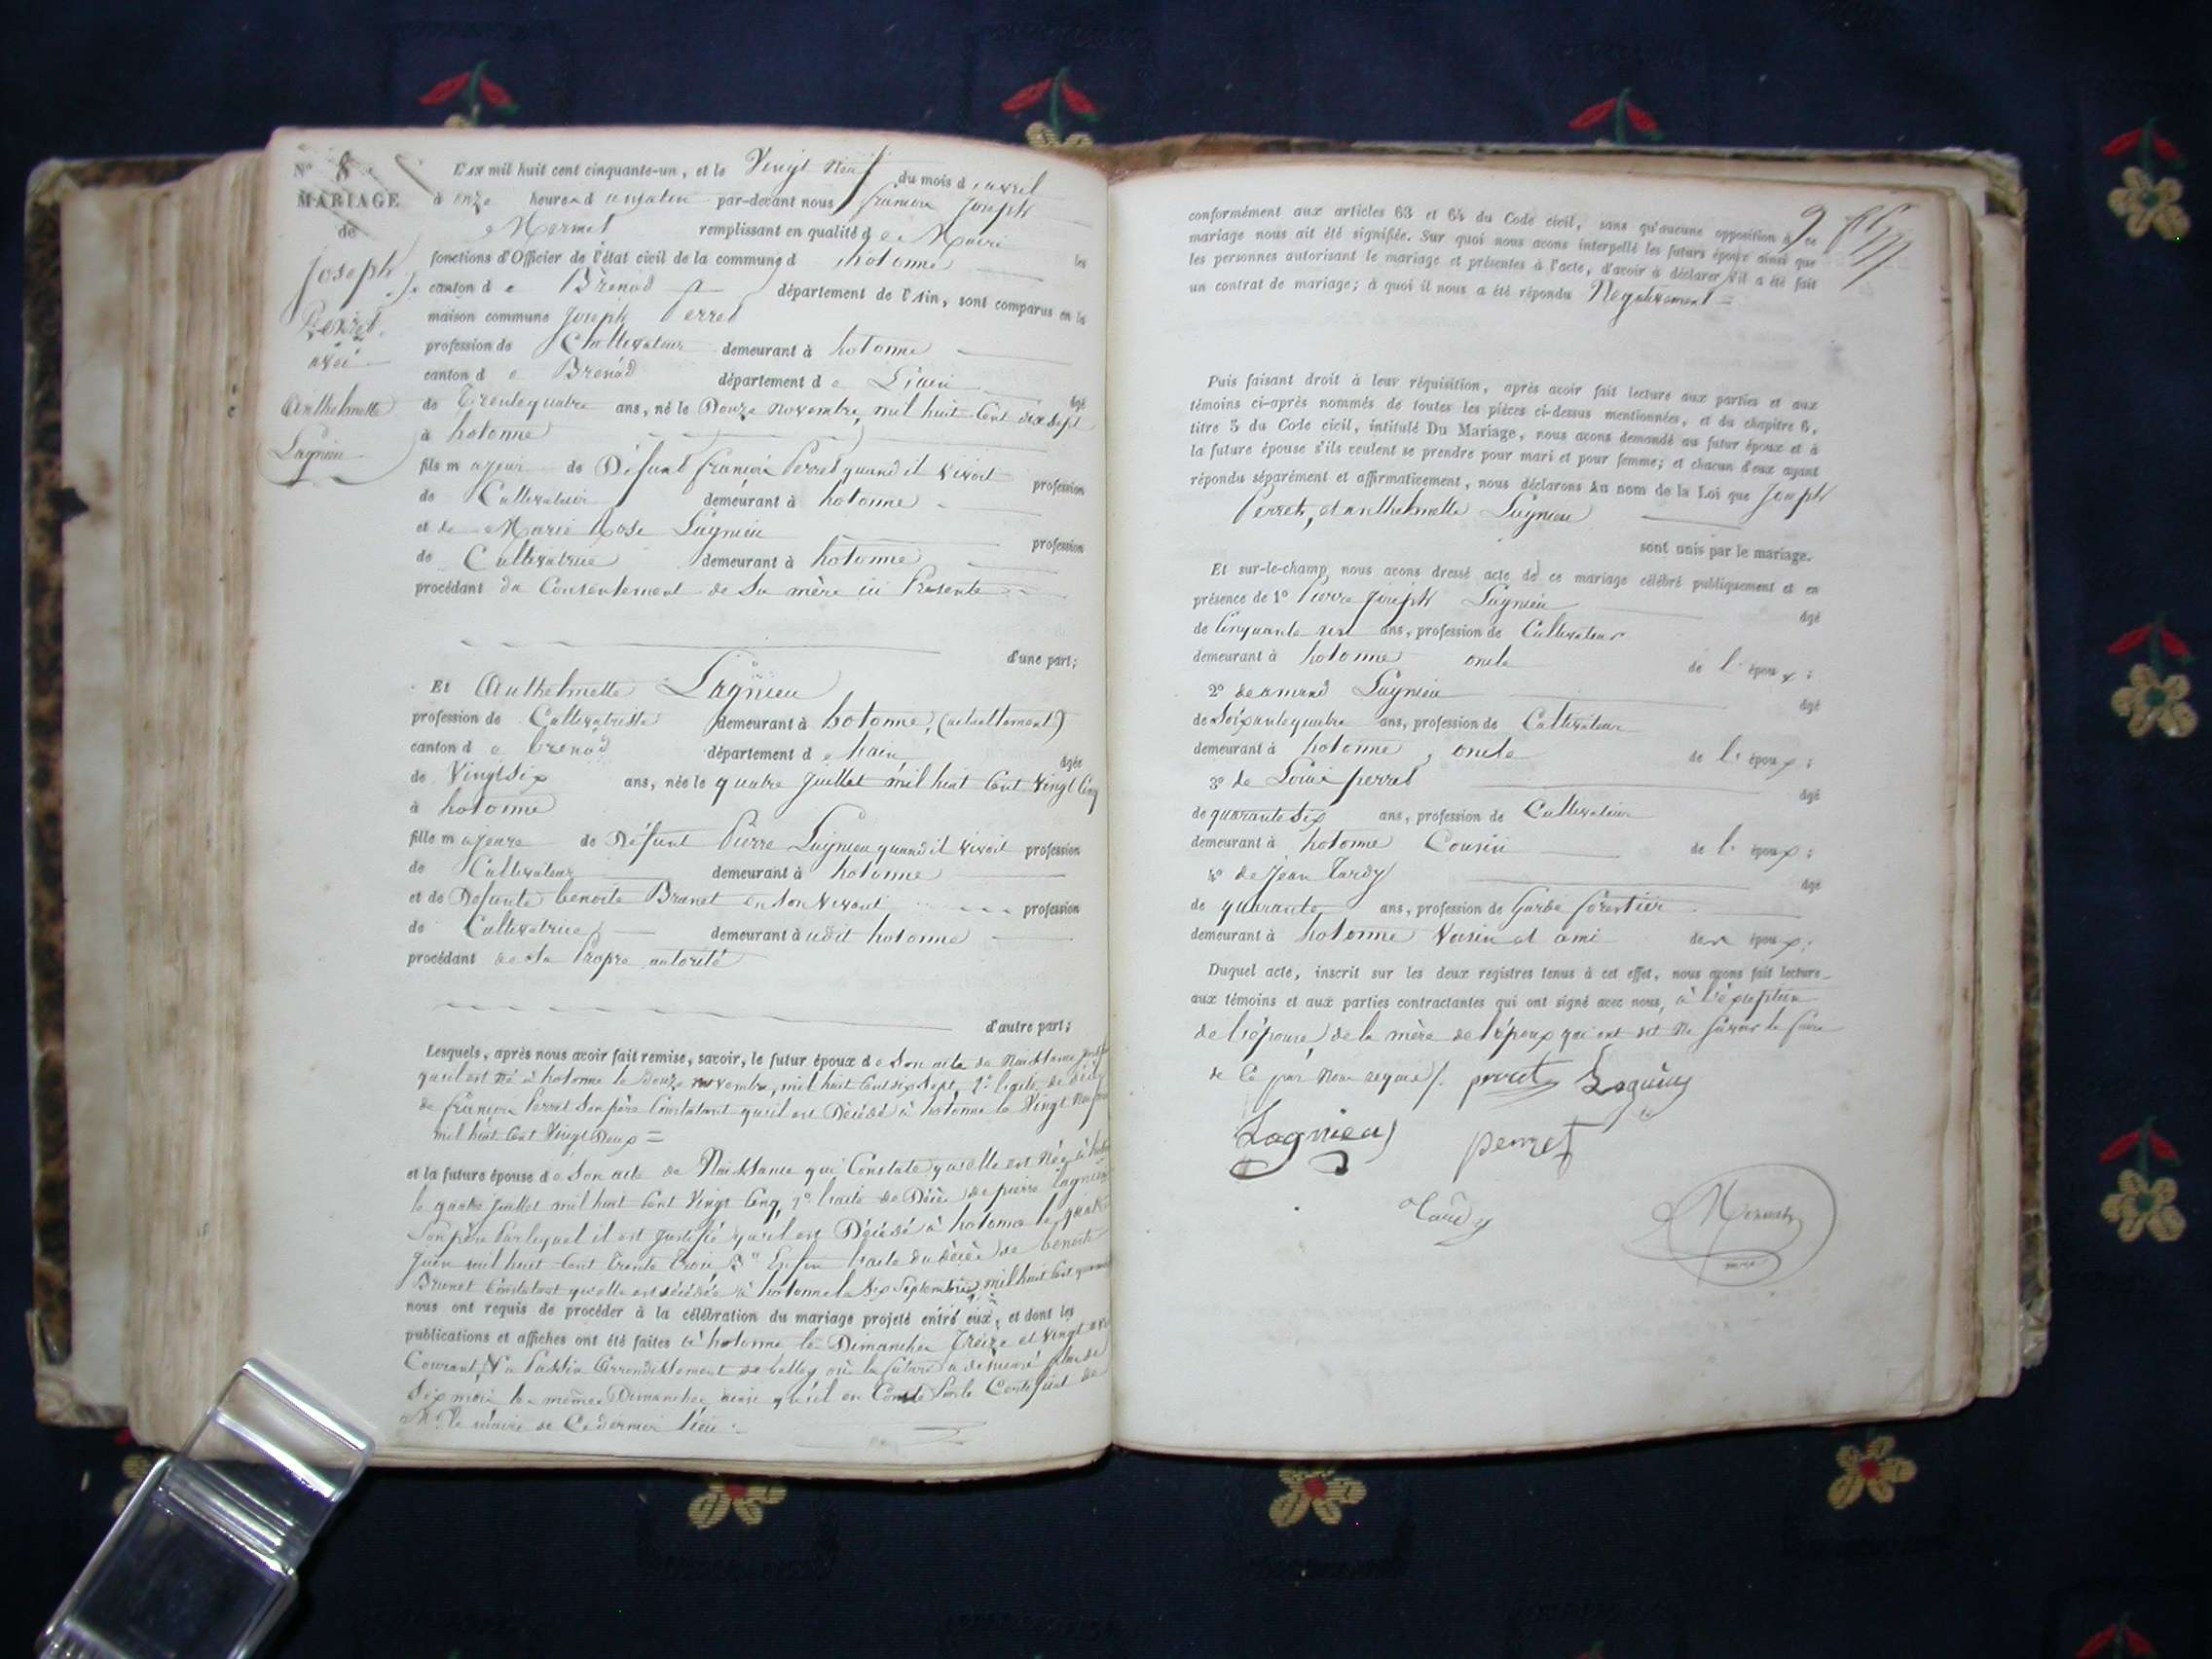 N° 8
MARIAGE
de
Joseph
Perret
avec
Anthelmette
Lagnieu
L'AN mil huit cent cinquante-un, et le Vingt Neuf du mois d'avril
à onze heures d u matin par-devant nous françois Joseph
Mermet remplissant en qualité de Maire les
fonctions d'Officier de l'état civil de la commune d hotonne
canton d e Brénod département de l'Ain, sont comparus en la
maison commune Joseph Perret
profession de Cultivateur demeurant à hotonne
canton d e Brénod département d e L'ain âgé
de Trente quatre ans, né le Douze novembre, mil huit Cent dix sept
à hotonne
fils majeur de Défunt françois Perret quand il vivoit profession
de Cultivateur demeurant à hotonne
et de Marie Rose Lagnieu profession
de Cultivatrice demeurant à hotonne
procédant du Consentement de Sa mère ici Présente
d'une part;
Et Anthelmette Lagnieu
profession de Cultivatrice demeurant à hotonne, (actuellement)
canton d e brenod département d e hain, âgée
de Vingt Six ans, née le quatre Juillet mil huit Cent Vingt Cinq
à hotonne
fille majeure de Défunt Pierre Lagnieu quand il vivoit profession
de Cultivateur demeurant à hotonne
et de Défunte benoite Brunet en Son vivant profession
de Cultivatrice demeurant à udit hotonne
procédant de Sa Propre autorité
d'autre part;
Lesquels, après nous avoir fait remise, savoir, le futur époux de Son acte de Naissance
qu'il est Né à hotonne le douze novembre, mil huit Cent dix Sept, de
de françois Perret Son père Constatant qu'il est Décédé à hotonne le Vingt
mil huit Cent Vingt Deux =
et la future épouse de Son acte de Naissance qui Constate qu'elle est Née à
le quatre Juillet mil huit Cent Vingt Cinq, de Décès de pierre Lagnieu
Son père Par lequel il est Justifié qu'il est Décédé à hotonne le quatre
Juin mil huit Cent Trente Trois 3° Enfin l'acte du décès de benoite
Brunet Constatant qu'elle est décédée à hotonne le Six Septembre, mil huit Cent
nous ont requis de procéder à la célébration du mariage projeté entre eux, et dont les
publications et affiches ont été faites à hotonne les Dimanches Treize et Vingt
Courant, arrondissement de belley où la future a demeuré plus de
Six mois les mêmes Dimanches ainsi qu'il en Conste Par le Certificat de
Mr. le maire de Ce dernier lieu
9
conformément aux articles 63 et 64 du Code civil, sans qu'aucune opposition à ce
mariage nous ait été signifiée. Sur quoi nous avons interpellé les futurs époux ainsi que
les personnes autorisant le mariage et présentes à l'acte, d'avoir à déclarer s'il a été fait
un contrat de mariage; à quoi il nous a été répondu Negativement =
Puis faisant droit à leur réquisition, après avoir fait lecture aux parties et aux
témoins ci-après nommés de toutes les pièces ci-dessus mentionnées, et du chapitre 6,
titre 5 du Code civil, intitulé Du Mariage, nous avons demandé au futur époux et à
la future épouse s'ils veulent se prendre pour mari et pour femme; et chacun d'eux ayant
répondu séparément et affirmativement, nous déclarons Au nom de la Loi que Joseph
Perret, et anthelmette Lagnieu
sont unis par le mariage.
Et sur-le-champ nous avons dressé acte de ce mariage célébré publiquement et en
présence de 1° Pierre Joseph Lagnieu âgé
de Cinquante ans, profession de Cultivateur
demeurant à hotonne oncle de l'époux;
2° de Lagnieu âgé
de Soixante quatre ans, profession de Cultivateur
demeurant à hotonne, oncle de l'époux;
3° de Louis perret âgé
de quarante Six ans, profession de Cultivateur
demeurant à hotonne Cousin de l'époux;
4° de Jean Tardy âgé
de quarante ans, profession de Garde forestier
demeurant à hotonne Voisin et ami des époux;
Duquel acte, inscrit sur les deux registres tenus à cet effet, nous avons fait lecture
aux témoins et aux parties contractantes qui ont signé avec nous, à l'éxeption
de l'épouse, de la mère de l'époux qui ont dit Ne Savoir le faire
de Ce par Nous requis /. perret Lagnieu
Lagnieu perret
Tardy
Mermet
maire